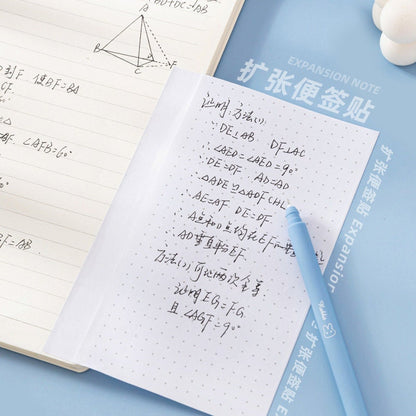 BD+DC=AB
A
B
C
F
使BF=BA
CF.
∠AFB=60°
BF=AB
证明:方法(1):
∵DE⊥AB DF⊥AC
∴∠AED=∠AED=90°
∵DE=DF AD=AD
∴△ADE≌△ADF(HL)
∴AE=AF DE=DF.
∴A点和D点均在EF
∴AD垂直平分EF.
方法(2)可证两次全等
证明EG=FG
且∠AGF=90°
EXPANSION NOTE
扩张便签贴
扩张便签贴 Expansion
扩张便签贴